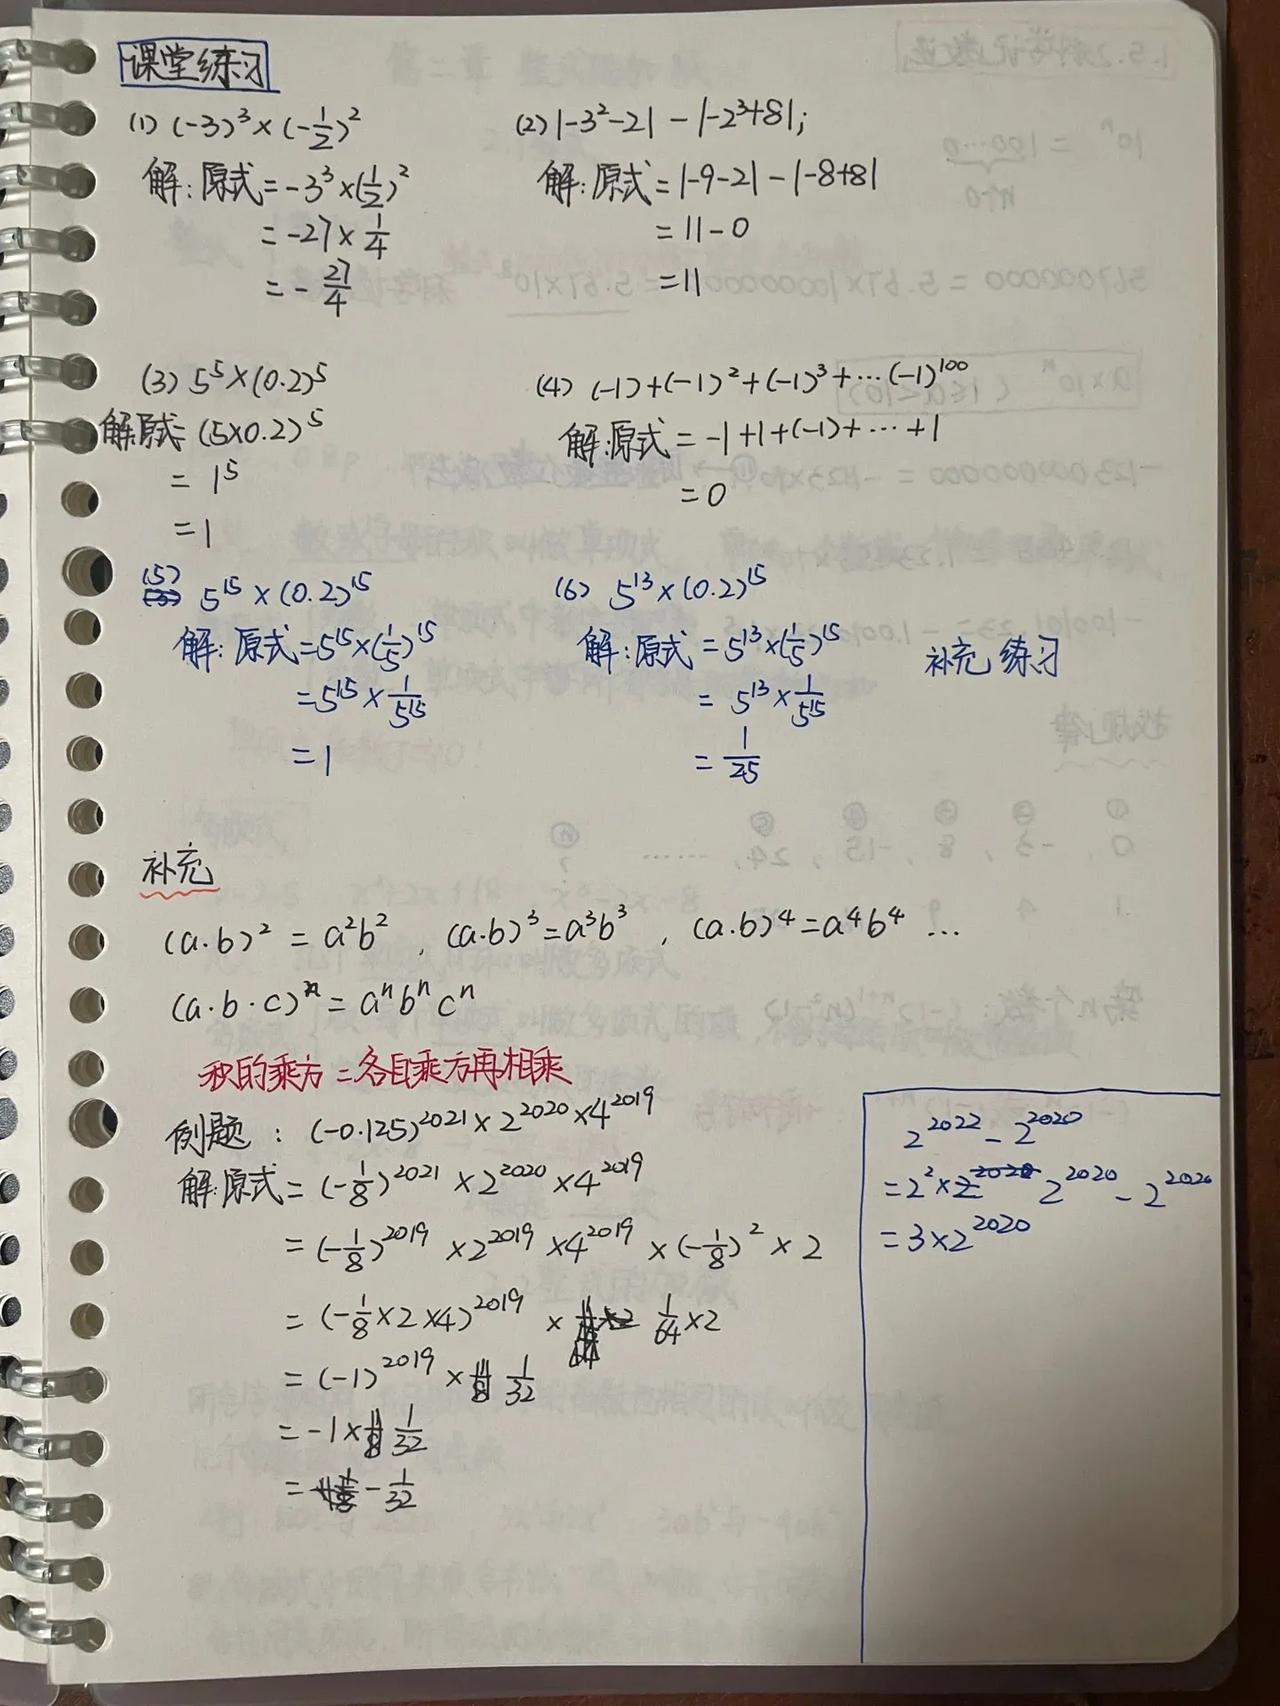 课堂练习
(1) (-3)³×(-1/2)²
解:原式=-3³×(1/2)²
=-27×1/4
=-27/4
(2) |-3²-2|-|-2³+8|;
解:原式=|-9-2|-|-8+8|
=11-0
=11
(3) 5⁵×(0.2)⁵
解:原式=(5×0.2)⁵
=1⁵
=1
(4) (-1)+(-1)²+(-1)³+…(-1)¹⁰⁰
解:原式=-1+1+(-1)+…+1
=0
(5) 5¹⁵×(0.2)¹⁵
解:原式=5¹⁵×(1/5)¹⁵
=5¹⁵×1/5¹⁵
=1
(6) 5¹³×(0.2)¹⁵
解:原式=5¹³×(1/5)¹⁵
=5¹³×1/5¹⁵
=1/25
补充练习
补充
(a·b)²=a²b², (a·b)³=a³b³, (a·b)⁴=a⁴b⁴…
(a·b·c)ⁿ=aⁿbⁿcⁿ
积的乘方=各自乘方再相乘
例题:(-0.125)²⁰²¹×2²⁰²⁰×4²⁰¹⁹
解:原式=(-1/8)²⁰²¹×2²⁰²⁰×4²⁰¹⁹
=(-1/8)²⁰¹⁹×2²⁰¹⁹×4²⁰¹⁹×(-1/8)²×2
=(-1/8×2×4)²⁰¹⁹×1/64×2
=(-1)²⁰¹⁹×1/32
=-1×1/32
=-1/32
2²⁰²²-2²⁰²⁰
=2²×2²⁰²⁰-2²⁰²⁰
=3×2²⁰²⁰